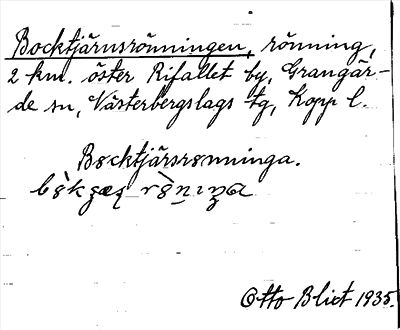 Bocktjärnsrönningen, rönning,
2 km. öster Rifallet by, Grangär-
de sn, Västerbergslags tg, Kopp l.
Bocktjärsrønninga.
Otto Blixt 1935.